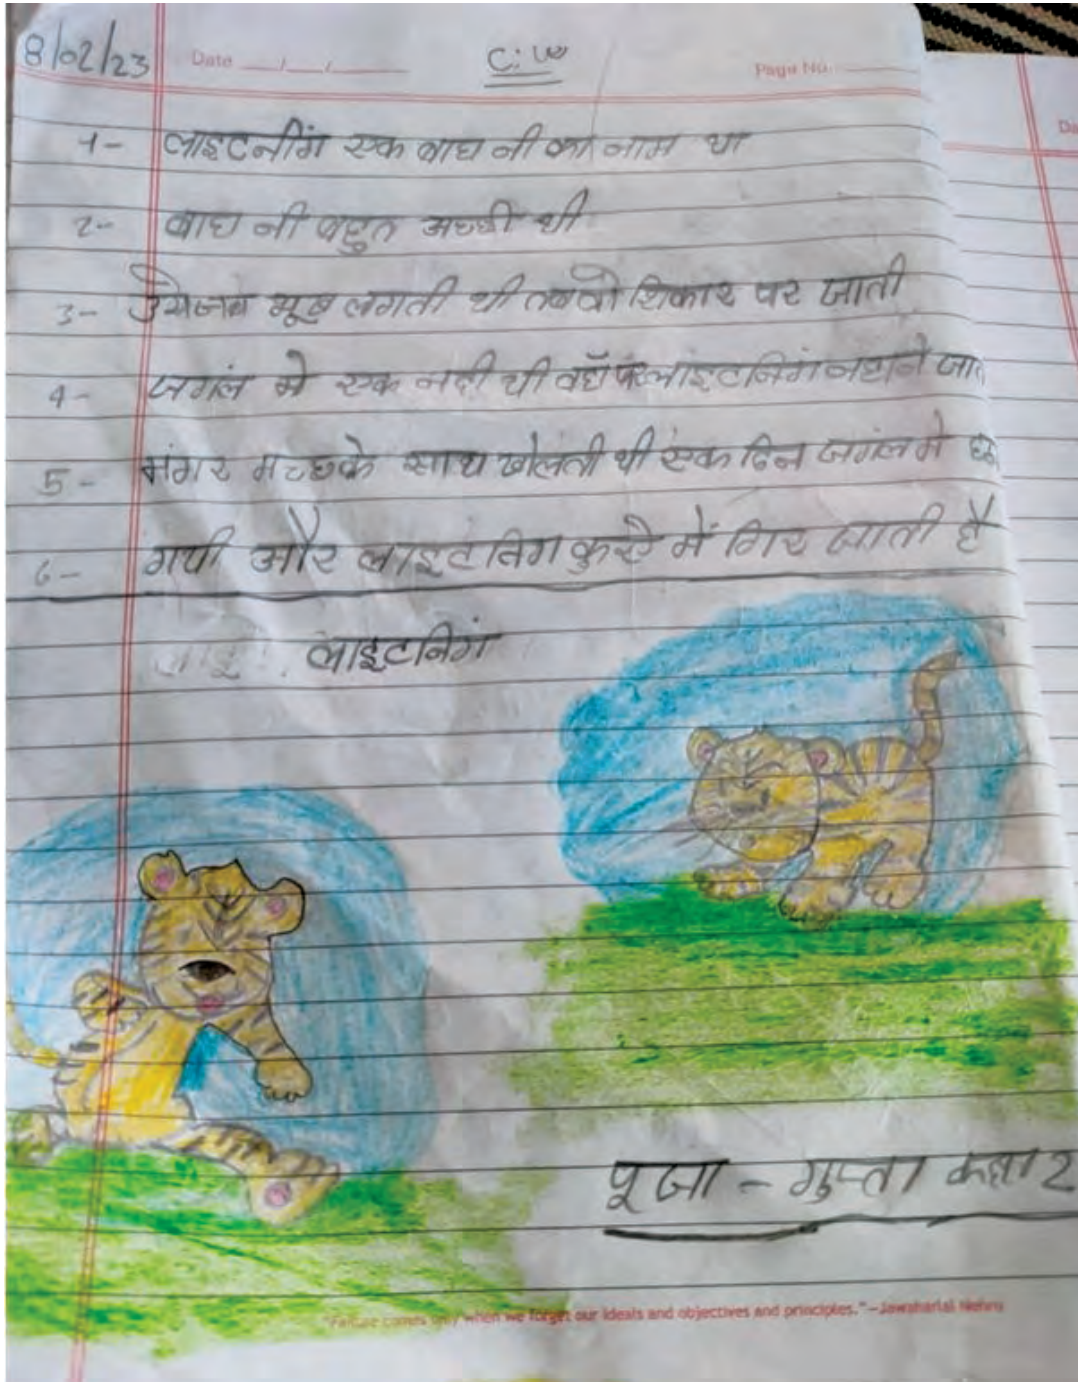 8/02/23
Date
C.W
Page No.
1- लाइटनींग एक बाघ नी का नाम था
2- बाघ नी बहुत अच्छी थी
3- उसेजब भूख लगती थी तब वो शिकार पर जाती
4- जगंल मे एक नदी थी वहाँ लांइटनिगं नहाने
5- मंगर मच्छके साथ खेलती थी एंक दिन जगंल मे
6- गयी और लाइटंनिग कुएे में गिर जाती है
लाइटनिगं
पूजा - गुप्ता कक्षा 2
"Failure comes only when we forget our ideals and objectives and principles." –Jawaharlal Nehru